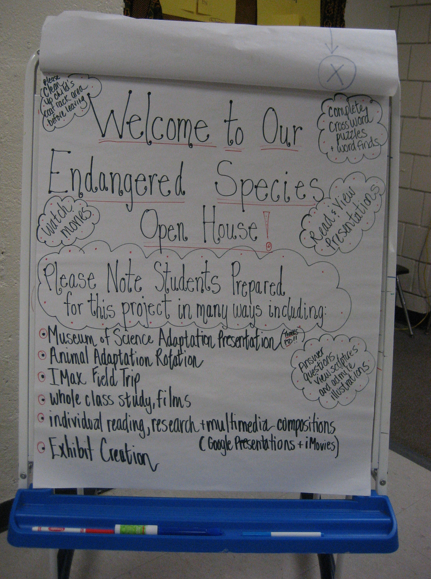 Please
Clean
up child's
coat rack area
before leaving
X
complete
crossword
puzzles
+ word finds
Welcome to Our
Endangered Species
Open House!
Watch
movies
Read & View
Presentations
Please Note Students Prepared
for this project in many ways including:
Museum of Science Adaptation Presentation
Animal Adaptation Rotation
IMax Field Trip
whole class study, films
individual reading, research + multimedia compositions
(Google Presentations + iMovies)
Exhibit Creation
Answer
questions
View scripts
and artistic
illustrations